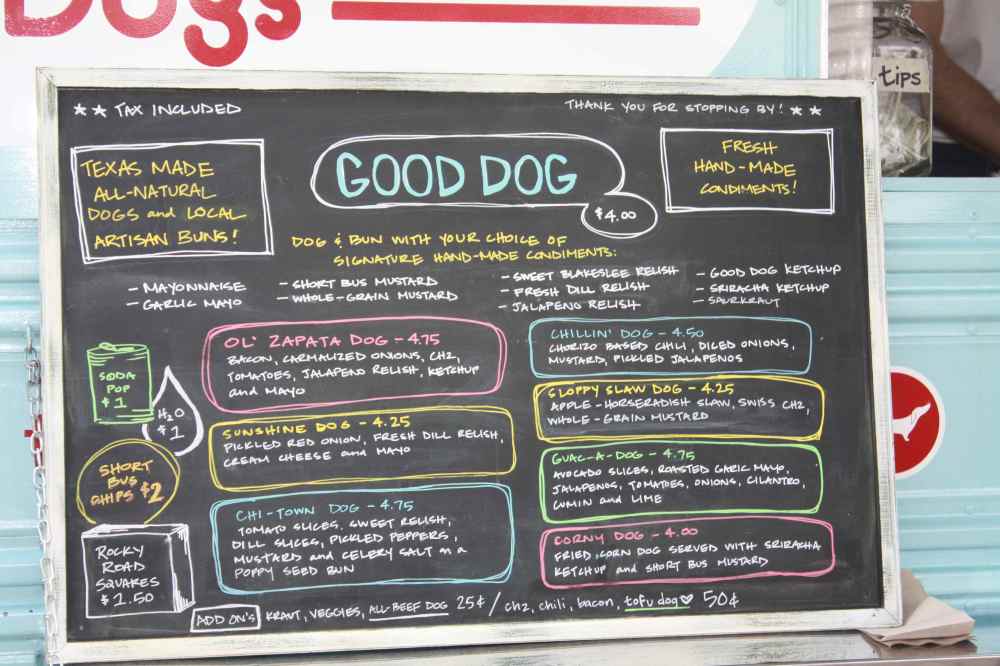 Dogs
tips
★ ★ TAX INCLUDED
THANK YOU FOR STOPPING BY! ★ ★
TEXAS MADE
ALL-NATURAL
DOGS and LOCAL
ARTISAN BUNS!
GOOD DOG
$4.00
FRESH
HAND-MADE
CONDIMENTS!
DOG & BUN WITH YOUR CHOICE OF
SIGNATURE HAND-MADE CONDIMENTS:
- MAYONNAISE
- GARLIC MAYO
- SHORT BUS MUSTARD
- WHOLE-GRAIN MUSTARD
- SWEET BLAKESLEE RELISH
- FRESH DILL RELISH
- JALAPENO RELISH
- GOOD DOG KETCHUP
- SRIRACHA KETCHUP
- SAURKRAUT
SODA
POP
$1
H2O
$1
SHORT
BUS
CHIPS $2
ROCKY
ROAD
SQUARES
$1.50
OL' ZAPATA DOG - 4.75
BACON, CARMALIZED ONIONS, CHZ,
TOMATOES, JALAPENO RELISH, KETCHUP
and MAYO
SUNSHINE DOG - 4.25
PICKLED RED ONION, FRESH DILL RELISH,
CREAM CHEESE and MAYO
CHI-TOWN DOG - 4.75
TOMATO SLICES, SWEET RELISH,
DILL SLICES, PICKLED PEPPERS,
MUSTARD and CELERY SALT on a
POPPY SEED BUN
CHILLIN' DOG - 4.50
CHORIZO BASED CHILI, DICED ONIONS,
MUSTARD, PICKLED JALAPENOS
SLOPPY SLAW DOG - 4.25
APPLE-HORSERADISH SLAW, SWISS CHZ,
WHOLE-GRAIN MUSTARD
GUAC-A-DOG - 4.75
AVOCADO SLICES, ROASTED GARIC MAYO,
JALAPENOS, TOMATOES, ONIONS, CILANTRO,
CUMIN and LIME
CORNY DOG - 4.00
FRIED CORN DOG SERVED WITH SRIRACHA
KETCHUP and SHORT BUS MUSTARD
ADD ON'S KRAUT, VEGGIES, ALL-BEEF DOG 25¢ / chz, chili, bacon, tofu dog ♥ 50¢